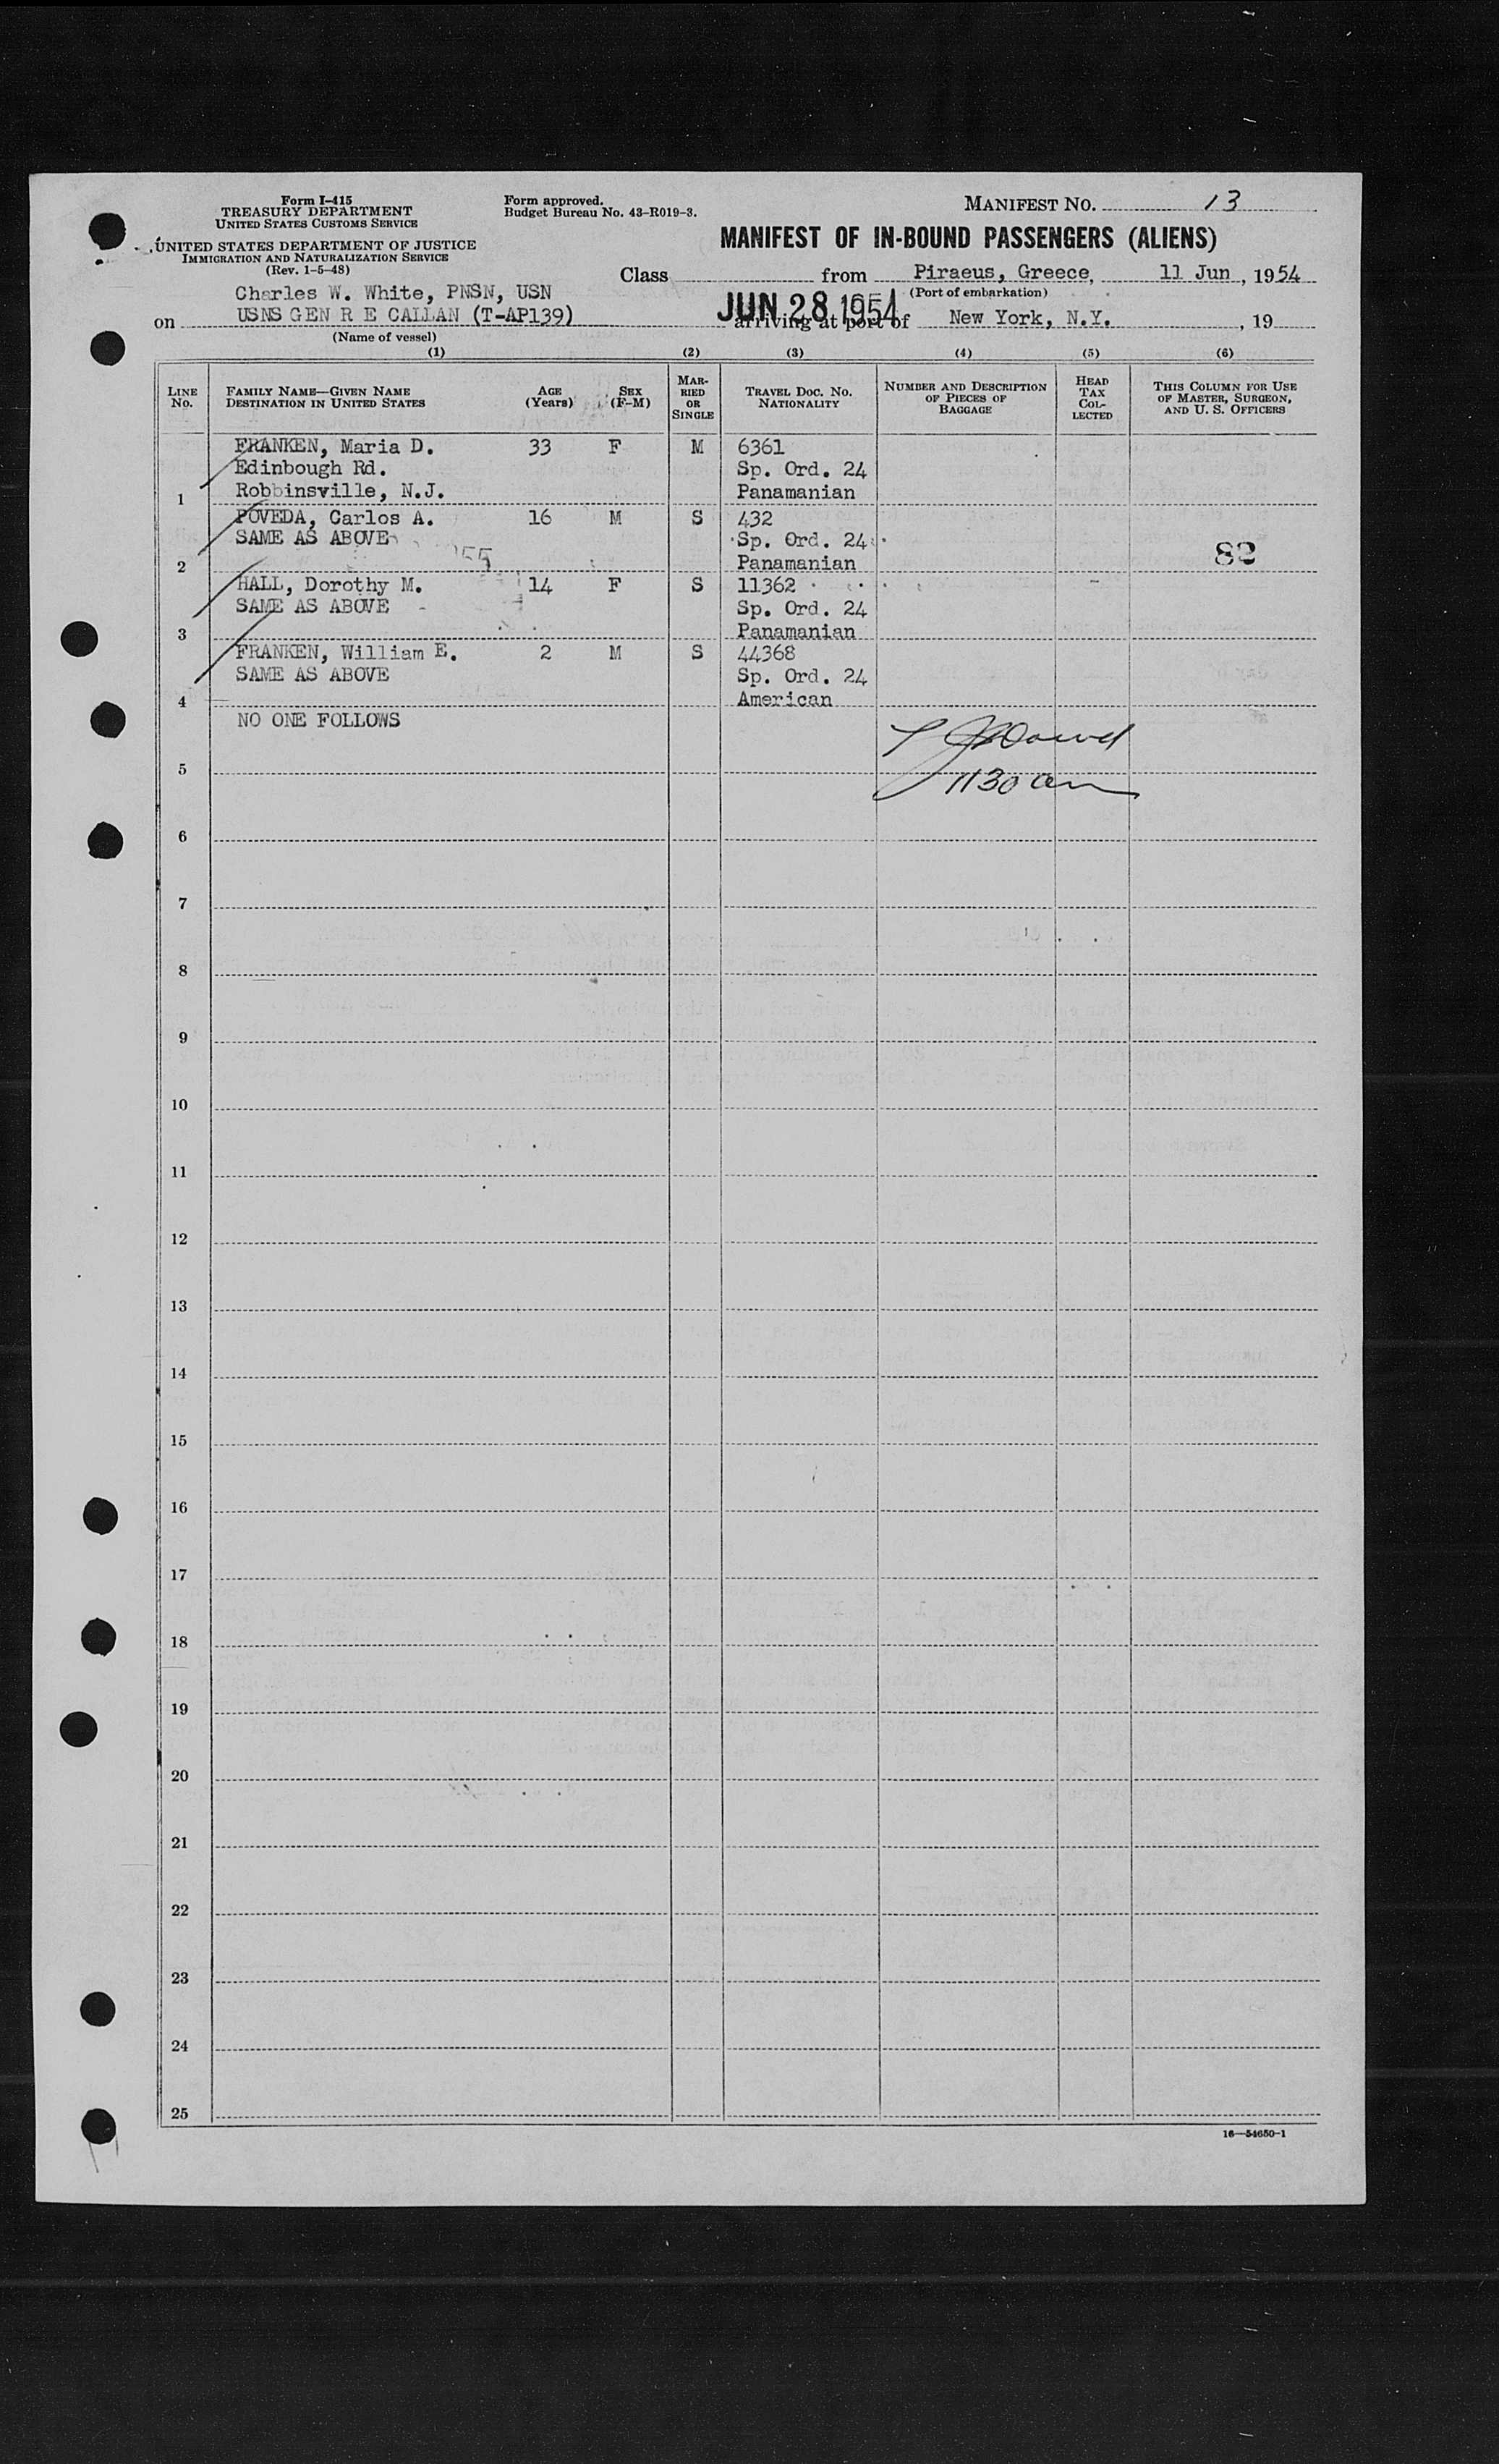 Form I-415
TREASURY DEPARTMENT
UNITED STATES CUSTOMS SERVICE
UNITED STATES DEPARTMENT OF JUSTICE
IMMIGRATION AND NATURALIZATION SERVICE
(Rev. 1-5-48)
Form approved.
Budget Bureau No. 43-R019-3.
MANIFEST NO. 13
MANIFEST OF IN-BOUND PASSENGERS (ALIENS)
Class from Piraeus, Greece, 11 Jun, 1954
(Port of embarkation)
Charles W. White, PNSN, USN
JUN 28 1954
on USNS GEN R E CALLAN (T-AP139) arriving at port of New York, N.Y. , 19
(Name of vessel)
(1) (2) (3) (4) (5) (6)
LINE No. FAMILY NAME—GIVEN NAME DESTINATION IN UNITED STATES AGE (Years) SEX (F-M) MARRIED OR SINGLE TRAVEL DOC. NO. NATIONALITY NUMBER AND DESCRIPTION OF PIECES OF BAGGAGE HEAD TAX COLLECTED THIS COLUMN FOR USE OF MASTER, SURGEON, AND U. S. OFFICERS
FRANKEN, Maria D. 33 F M 6361
Edinbough Rd. Sp. Ord. 24
1 Robbinsville, N.J. Panamanian
POVEDA, Carlos A. 16 M S 432
SAME AS ABOVE Sp. Ord. 24
82
2 Panamanian
HALL, Dorothy M. 14 F S 11362
SAME AS ABOVE Sp. Ord. 24
3 Panamanian
FRANKEN, William E. 2 M S 44368
SAME AS ABOVE Sp. Ord. 24
4 American
NO ONE FOLLOWS
5 1130 am
6
7
8
9
10
11
12
13
14
15
16
17
18
19
20
21
22
23
24
25
16—54650-1